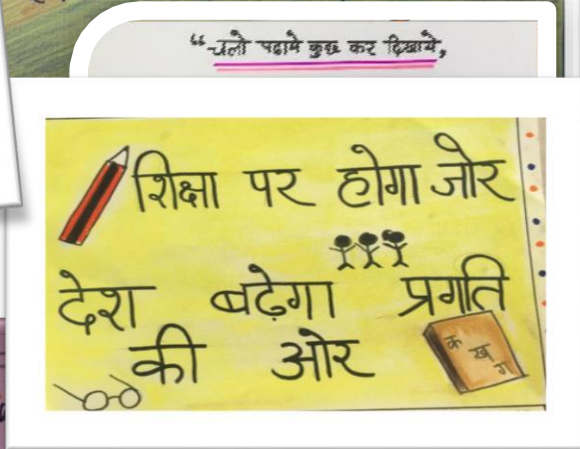 “चलो पढाये कुछ कर दिखाये,
शिक्षा पर होगा जोर
देश बढेगा प्रगति
की ओर
क
ख
ग